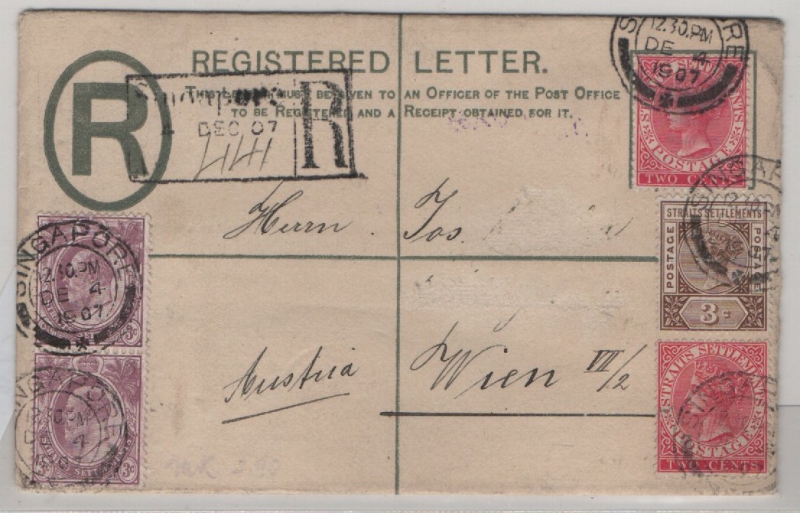 12.30.PM
DE 4
1907
REGISTERED LETTER.
THIS LETTER MUST BE GIVEN TO AN OFFICER OF THE POST OFFICE
TO BE REGISTERED AND A RECEIPT OBTAINED FOR IT.
R
Singapore
4 DEC 07
R
441
POSTAGE
TWO CENTS
Herrn. Jos.
SINGAPORE
12.30PM
DE 4
1907
SINGAPORE
STRAITS SETTLEMENTS
POSTAGE
POSTAGE
3
Austria
Wien VII/2
SINGAPORE
DE 4
STRAITS SETTLEMENTS
POSTAGE
TWO CENTS